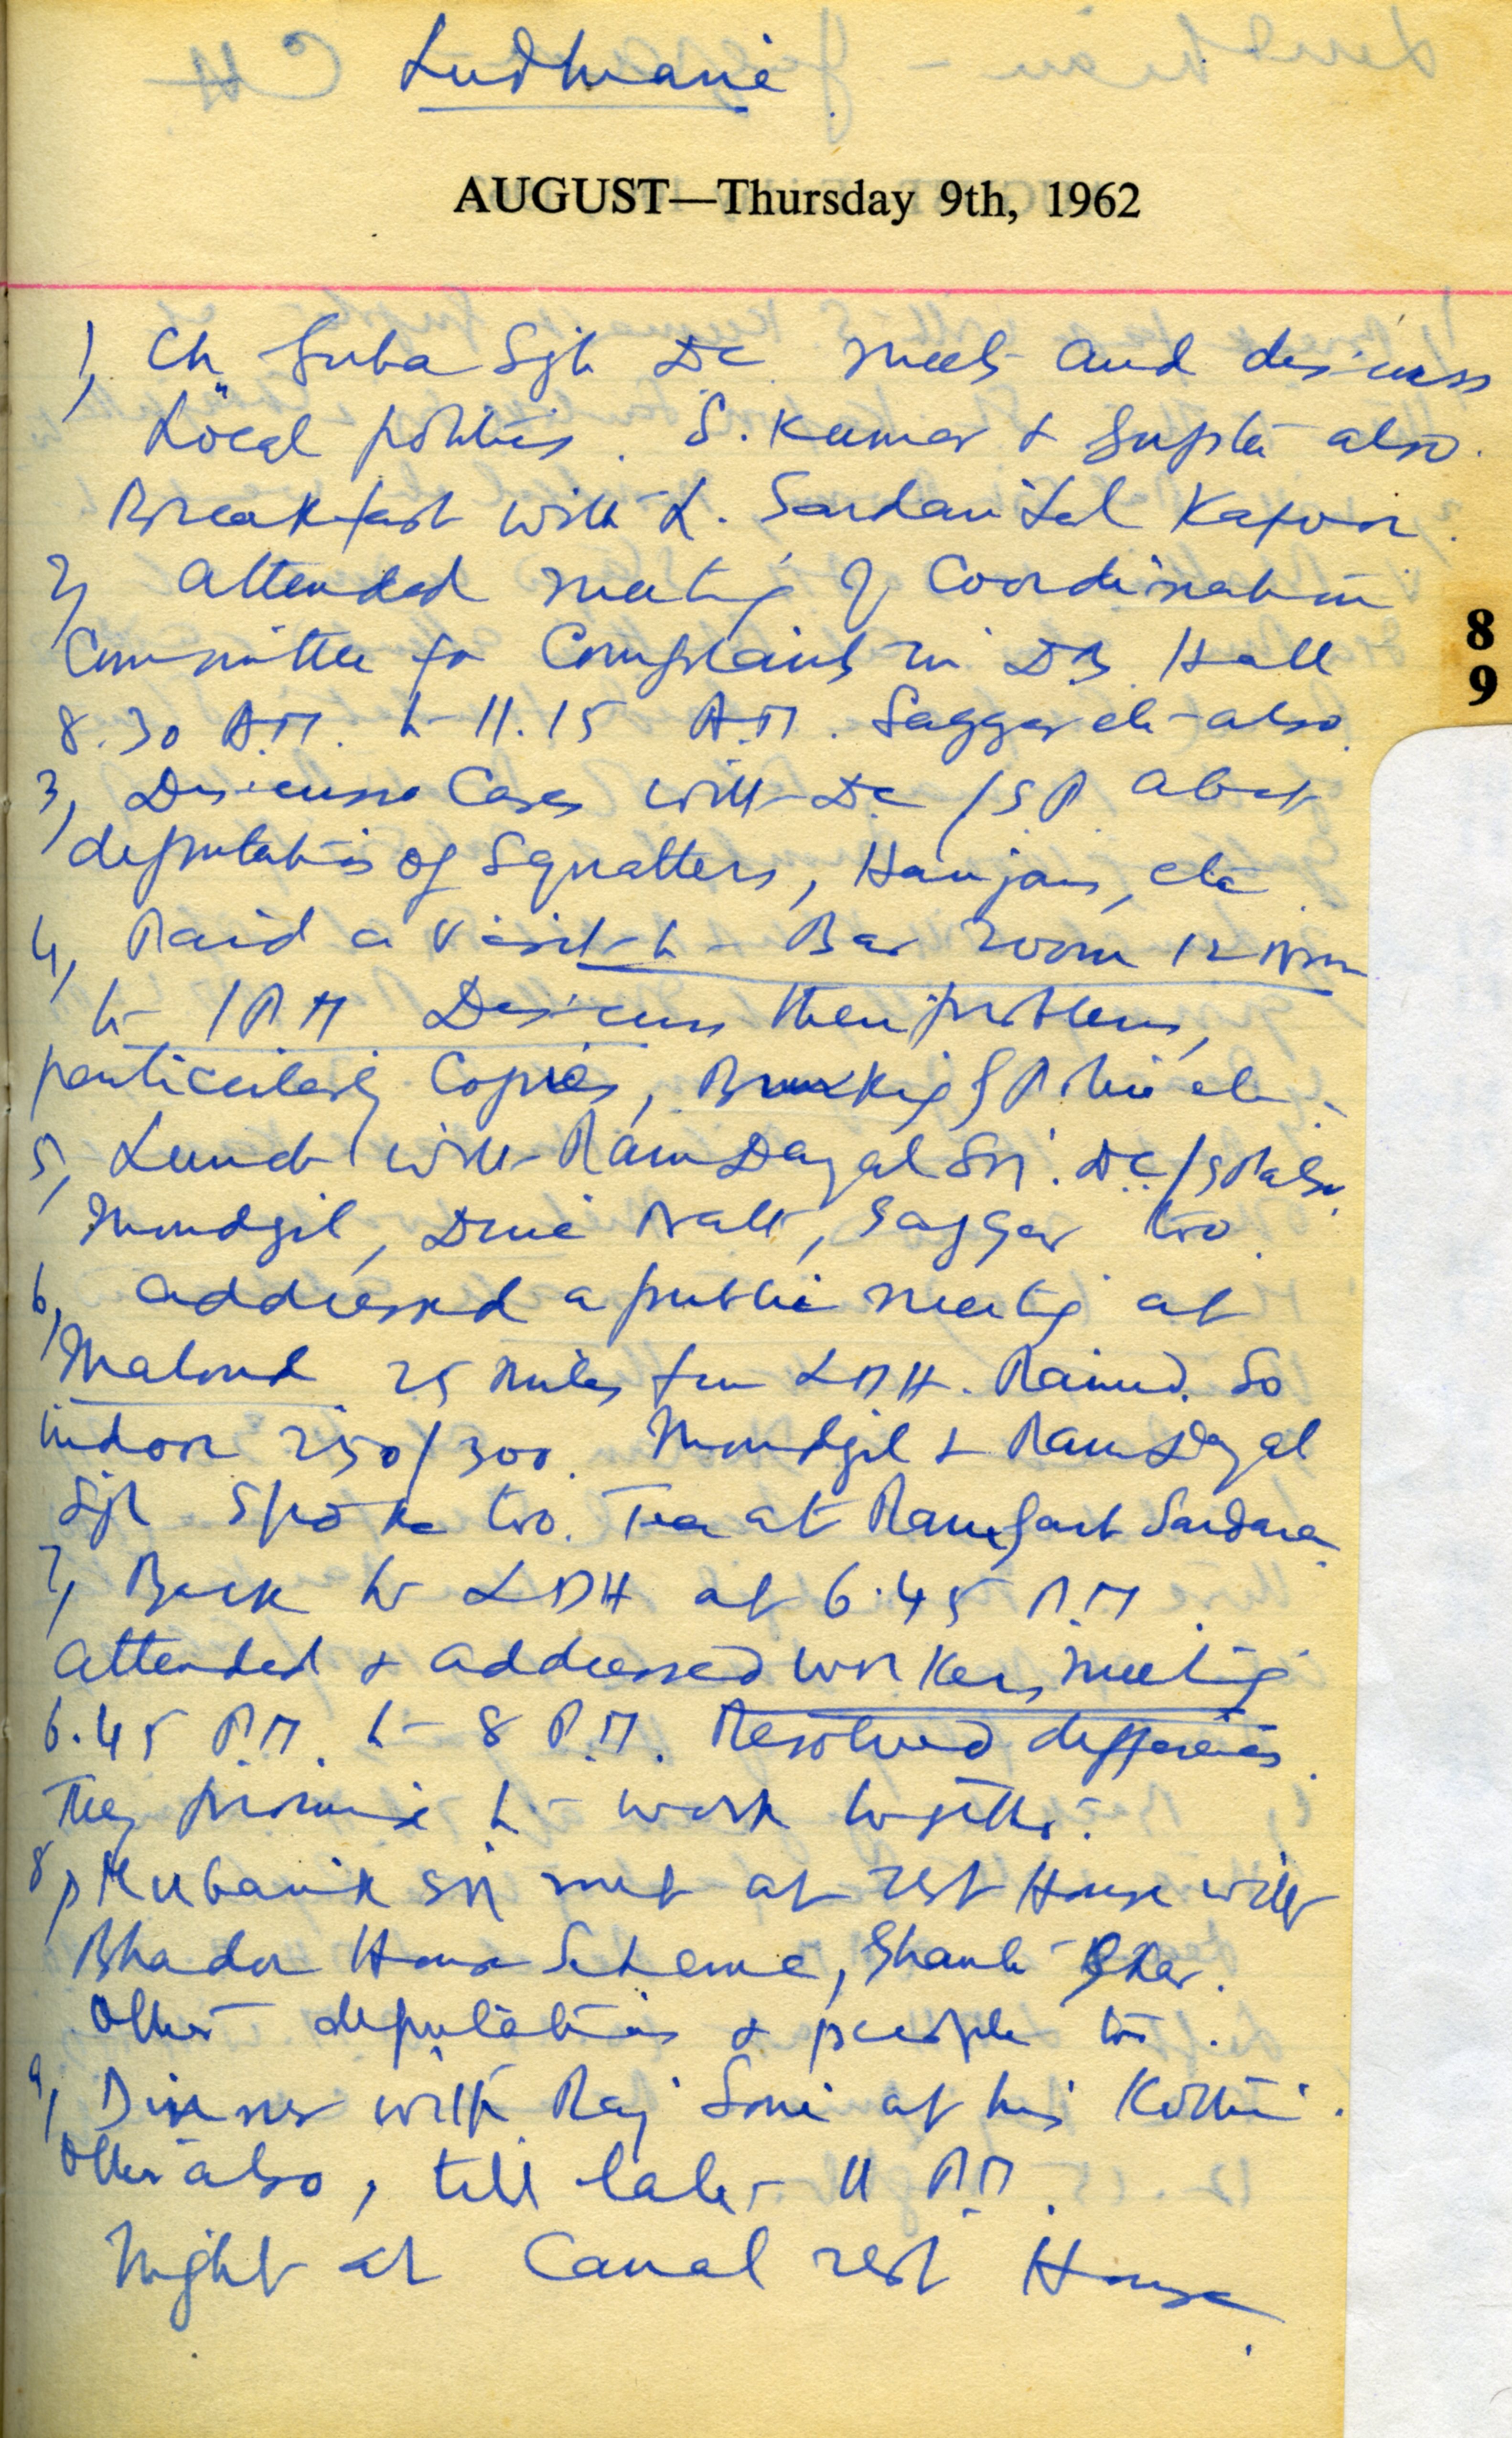 Ludhiana
AUGUST—Thursday 9th, 1962
1, Ch Suba Sgh DC meets and discuss
Local politics. S. Kumar & Gupta also.
Breakfast with L. Sardari Lal Kapoor.
2, Attended meeting of Coordination
Committee for Complaints in DB Hall
8
9
8.30 A.M. to 11.15 A.M. Saggar etc also.
3, Discuss Cases with DC / SP about
deputations of Squatters, Harijans, etc.
4, Paid a visit to Bar room 12 Noon
to 1 PM Discuss their problems,
particularly Copies, Parking of Police etc.
5, Lunch with Ram Dayal Sn. DC/SP also.
Mondgil, Saggar too.
6, addressed a public meeting at
Maloud 25 miles from LDH. Rained. So
indoor 250/300. Mondgil & Ram Dayal
Sgh spoke too. Tea at Ramgarh Sardara.
7, Back to LDH at 6.45 P.M.
attended & addressed workers meeting
6.45 P.M. to 8 P.M. Resolved differences.
They promise to work together.
8, Mubarik Sn met at rest House with
Bhador House Scheme,
Other deputations & people too.
9, Dinner with Raj Soni at his Kothi.
Others also, till late 11 P.M.
Night at Canal rest House.